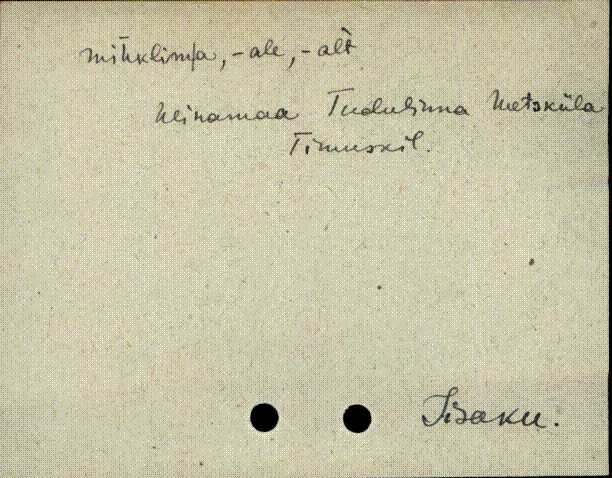 mihklima, -ale, -alt
heinamaa Tudulinna Metsküla
Timuskil.
Iisaku.